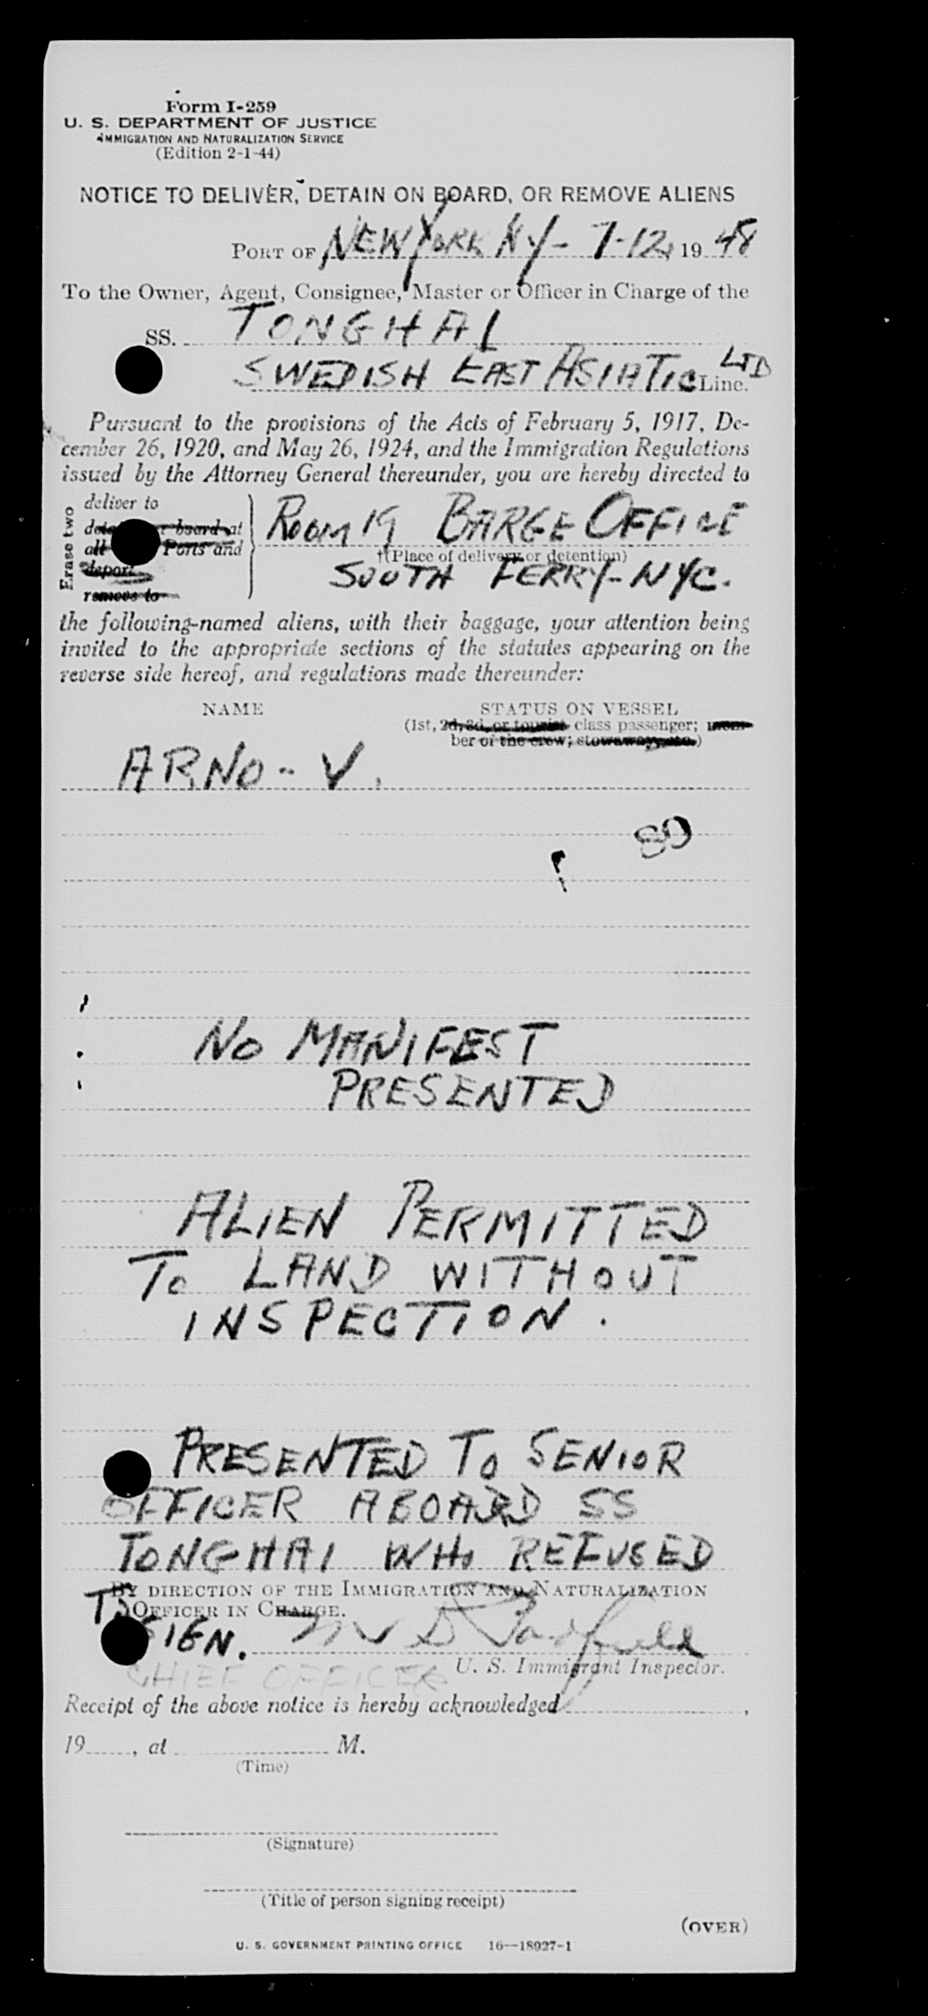 Form I-259
U. S. DEPARTMENT OF JUSTICE
IMMIGRATION AND NATURALIZATION SERVICE
(Edition 2-1-44)
NOTICE TO DELIVER, DETAIN ON BOARD, OR REMOVE ALIENS
PORT OF NEW YORK NY - 7-12, 19 48
To the Owner, Agent, Consignee, Master or Officer in Charge of the
SS. TONGHAI
SWEDISH EAST ASIATIC LTD Line.
Pursuant to the provisions of the Acts of February 5, 1917, De-
cember 26, 1920, and May 26, 1924, and the Immigration Regulations
issued by the Attorney General thereunder, you are hereby directed to
Erase two
deliver to
board at
all Ports and
deport
remove to
ROOM 19 BARGE OFFICE
†(Place of delivery or detention)
SOUTH FERRY - NYC.
the following-named aliens, with their baggage, your attention being
invited to the appropriate sections of the statutes appearing on the
reverse side hereof, and regulations made thereunder:
NAME STATUS ON VESSEL
(1st, 2d, 3d, or tourist class passenger; mem-
ber of the crew; stowaway, etc.)
ARNO - V.
80
NO MANIFEST
PRESENTED
ALIEN PERMITTED
TO LAND WITHOUT
INSPECTION.
PRESENTED TO SENIOR
OFFICER ABOARD SS
TONGHAI WHO REFUSED
BY DIRECTION OF THE IMMIGRATION AND NATURALIZATION
OFFICER IN CHARGE.
TO
SIGN.
CHIEF OFFICER U. S. Immigrant Inspector.
Receipt of the above notice is hereby acknowledged ,
19 , at M.
(Time)
(Signature)
(Title of person signing receipt)
(OVER)
U. S. GOVERNMENT PRINTING OFFICE 16—18927-1